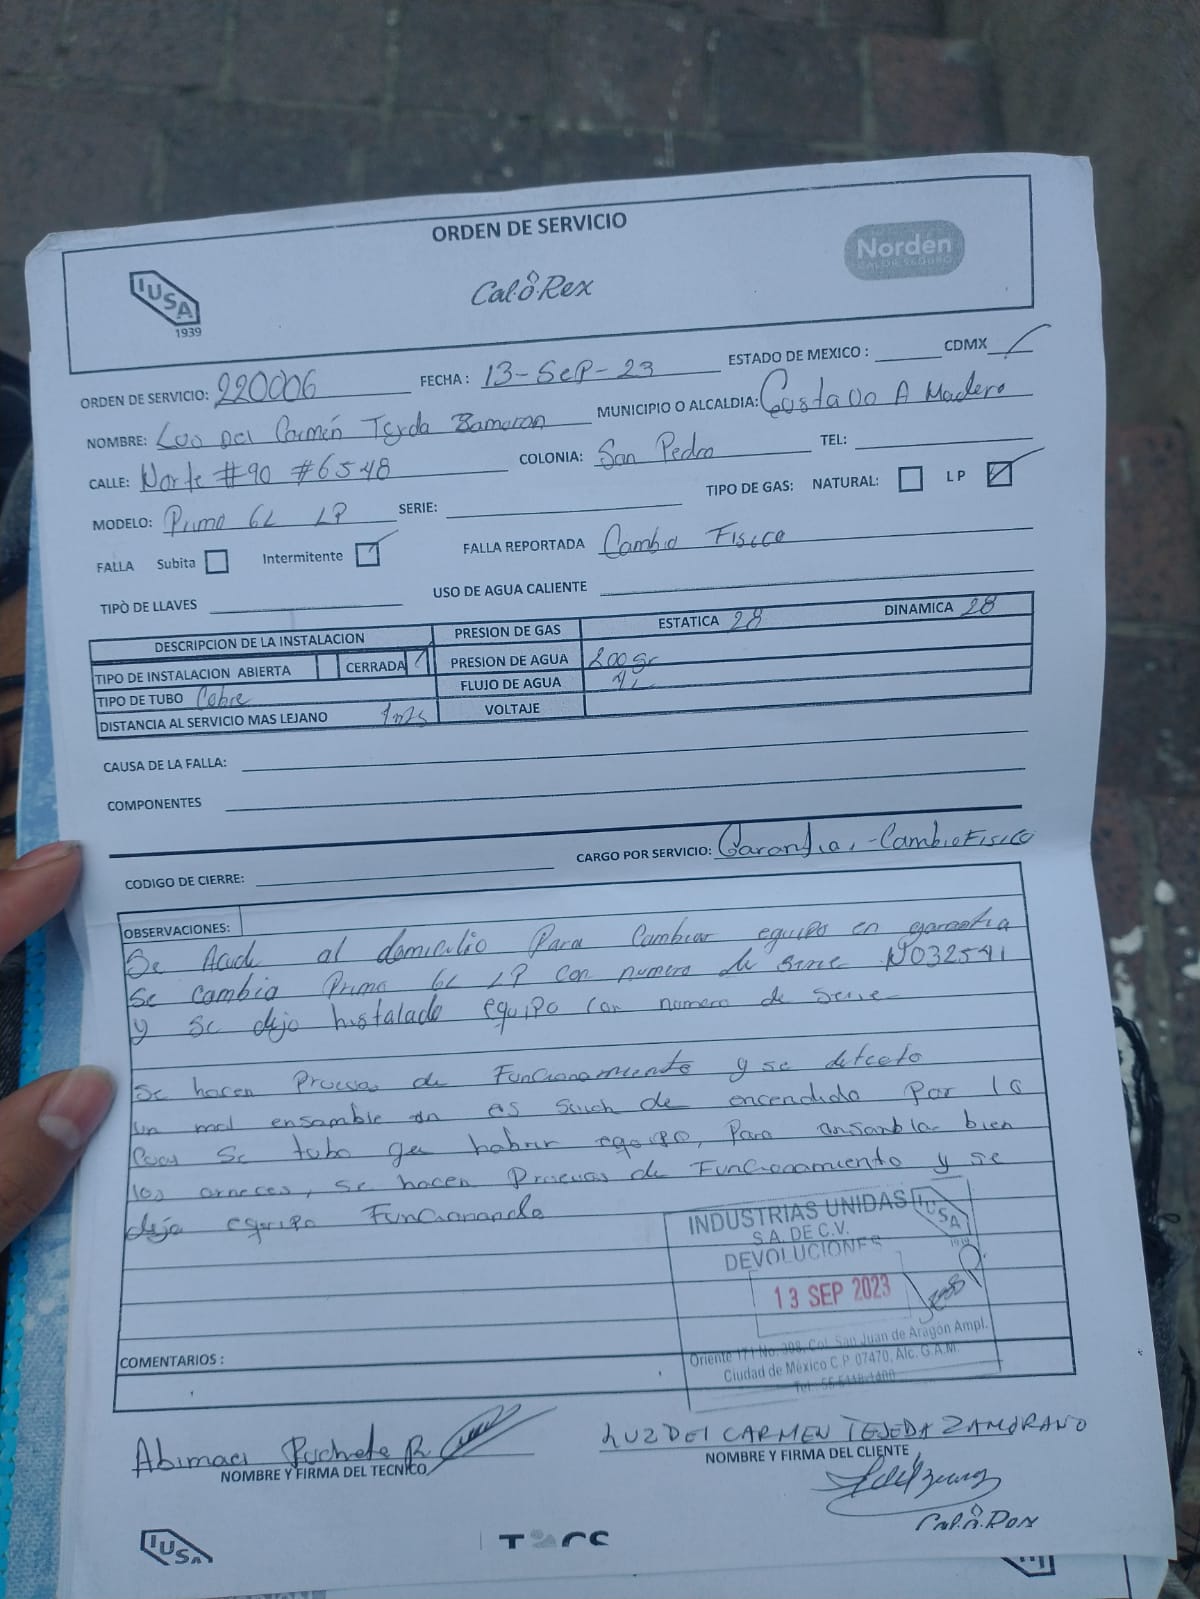 ORDEN DE SERVICIO
IUSA
1939
Cal-ô-Rex
Nordën
CALOR SEGURO
ORDEN DE SERVICIO: 220006 FECHA: 13-SEP-23 ESTADO DE MEXICO: CDMX
NOMBRE: Luz Del Carmén Tejeda Zamoran MUNICIPIO O ALCALDIA: Gustavo A Madero
CALLE: Norte #90 #6548 COLONIA: San Pedro TEL:
MODELO: Primo 6L LP SERIE: TIPO DE GAS: NATURAL: LP
FALLA Subita Intermitente FALLA REPORTADA Cambio Fisico
TIPÒ DE LLAVES USO DE AGUA CALIENTE
DESCRIPCION DE LA INSTALACION PRESION DE GAS ESTATICA 28 DINAMICA 28
TIPO DE INSTALACION ABIERTA CERRADA PRESION DE AGUA 200 gr
TIPO DE TUBO Cobre FLUJO DE AGUA
DISTANCIA AL SERVICIO MAS LEJANO VOLTAJE
CAUSA DE LA FALLA:
COMPONENTES
CODIGO DE CIERRE: CARGO POR SERVICIO: Garantia, -Cambio Fisico
OBSERVACIONES:
Se Acude al domicilio Para Cambiar equipo en garantia
Se cambia Primo 6L LP Con numero de serie N032541
y se dejo Instalado equipo con numero de serie
Se hacen Pruevas de Funcionamiento y se detecto
un mal ensamble en es suich de encendido Por lo
cual se tubo qe habrir equipo, Para ansanblar bien
los arneces, se hacen Pruevas de Funcionamiento y se
deja equipo Funcionando
INDUSTRIAS UNIDAS
S.A. DE C.V.
DEVOLUCIONES
IUSA
13 SEP 2023
Oriente 171 No. 398, Col. San Juan de Aragón Ampl.
Ciudad de México C.P. 07470, Alc. G.A.M.
COMENTARIOS :
Abimael
NOMBRE Y FIRMA DEL TECNICO
LUZ DEl CARMEN TEJEDA ZAMORANO
NOMBRE Y FIRMA DEL CLIENTE
IUSA
Cal-ô-Rex